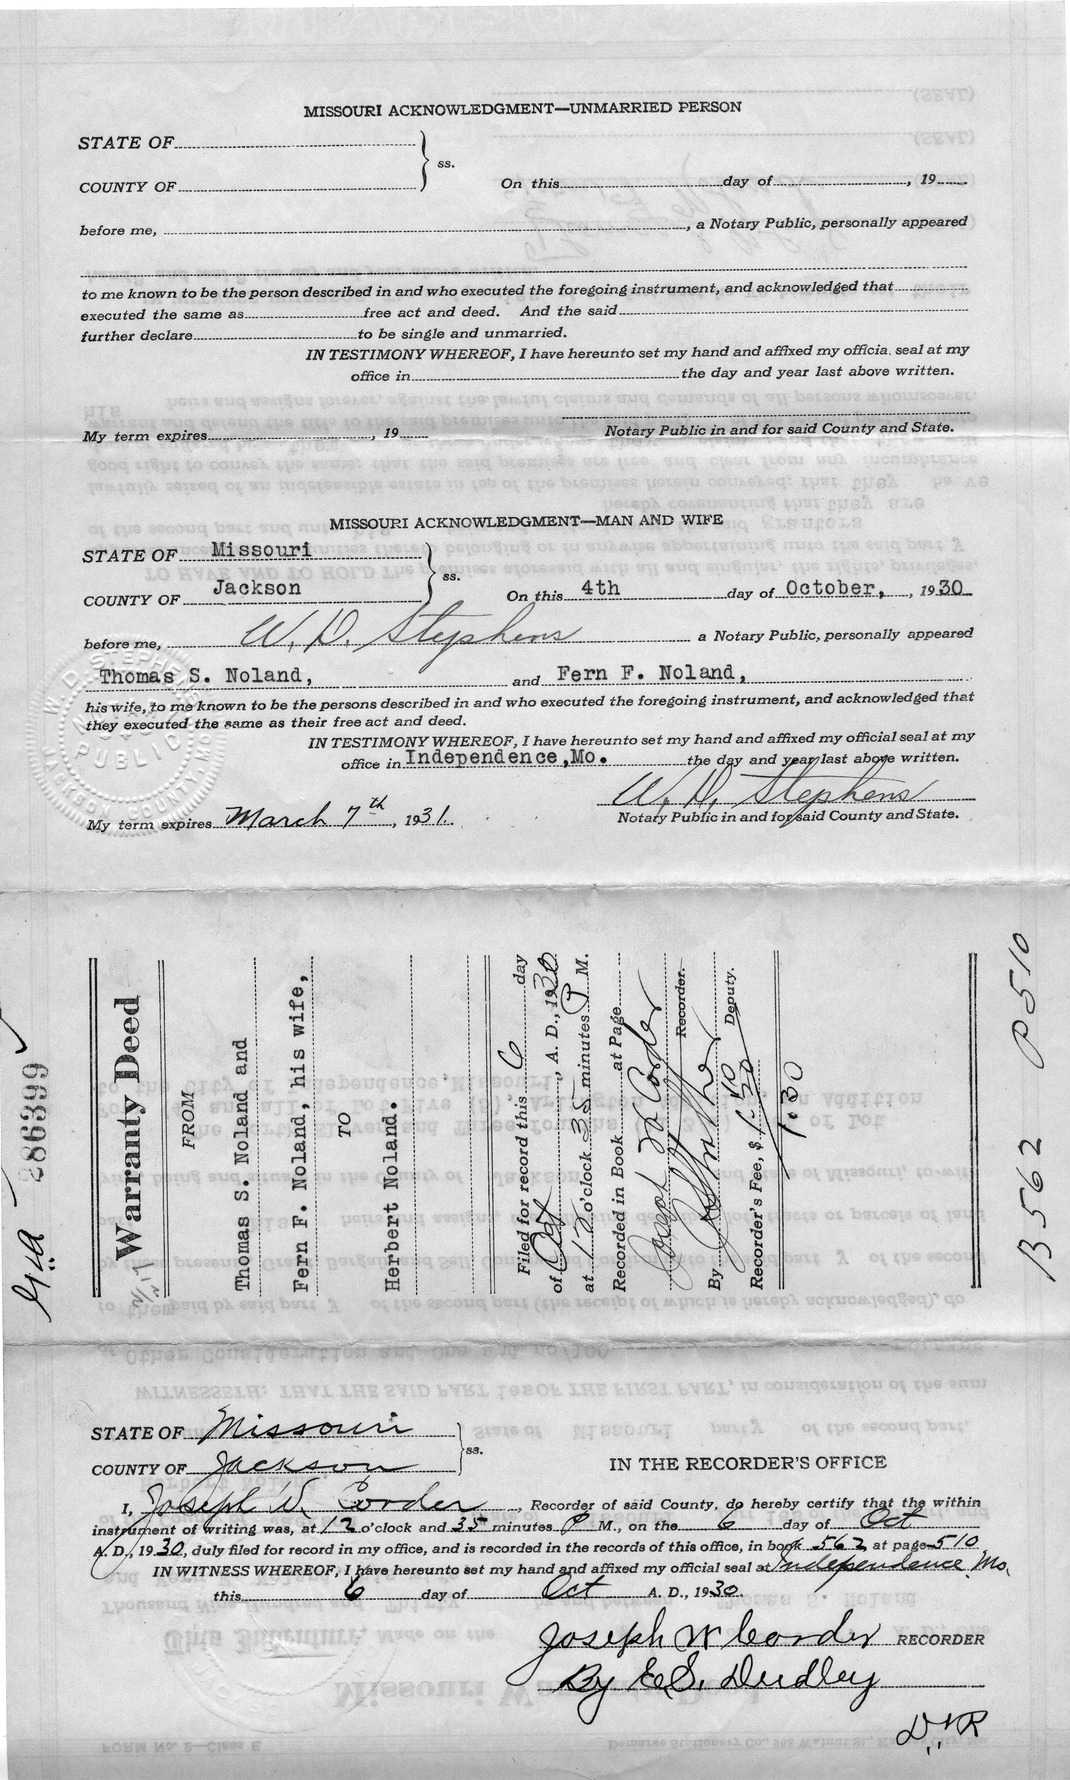 MISSOURI ACKNOWLEDGMENT—UNMARRIED PERSON
STATE OF
ss.
COUNTY OF
On this day of , 19
before me, , a Notary Public, personally appeared
to me known to be the person described in and who executed the foregoing instrument, and acknowledged that
executed the same as free act and deed. And the said
further declare to be single and unmarried.
IN TESTIMONY WHEREOF, I have hereunto set my hand and affixed my officia. seal at my
office in the day and year last above written.
My term expires , 19 Notary Public in and for said County and State.
MISSOURI ACKNOWLEDGMENT—MAN AND WIFE
STATE OF Missouri
ss.
COUNTY OF Jackson On this 4th day of October, , 1930
before me, W. D. Stephens a Notary Public, personally appeared
Thomas S. Noland, and Fern F. Noland,
his wife, to me known to be the persons described in and who executed the foregoing instrument, and acknowledged that
they executed the same as their free act and deed.
IN TESTIMONY WHEREOF, I have hereunto set my hand and affixed my official seal at my
office in Independence, Mo. the day and year last above written.
W. D. Stephens
My term expires March 7th, 1931. Notary Public in and for said County and State.
W. D. STEPHENS
NOTARY
PUBLIC
JACKSON COUNTY, MO.
286399
Warranty Deed
FROM
Thomas S. Noland and
Fern F. Noland, his wife,
TO
Herbert Noland.
Filed for record this 6 day
of Oct, A. D., 1930
at 12 o'clock 35 minutes P M.
Recorded in Book at Page
Joseph W Corder
Recorder.
By
Deputy.
Recorder's Fee, $ 1.20
1.30
B 562 P 510
STATE OF Missouri
ss.
COUNTY OF Jackson IN THE RECORDER'S OFFICE
I, Joseph W. Corder, Recorder of said County, do hereby certify that the within
instrument of writing was, at 12 o'clock and 35 minutes P M., on the 6 day of Oct
A. D., 1930, duly filed for record in my office, and is recorded in the records of this office, in book 562 at page 510
IN WITNESS WHEREOF, I have hereunto set my hand and affixed my official seal at Independence, Mo.
this 6 day of Oct A. D., 1930.
Joseph W Corder RECORDER
By E. S. Dudley